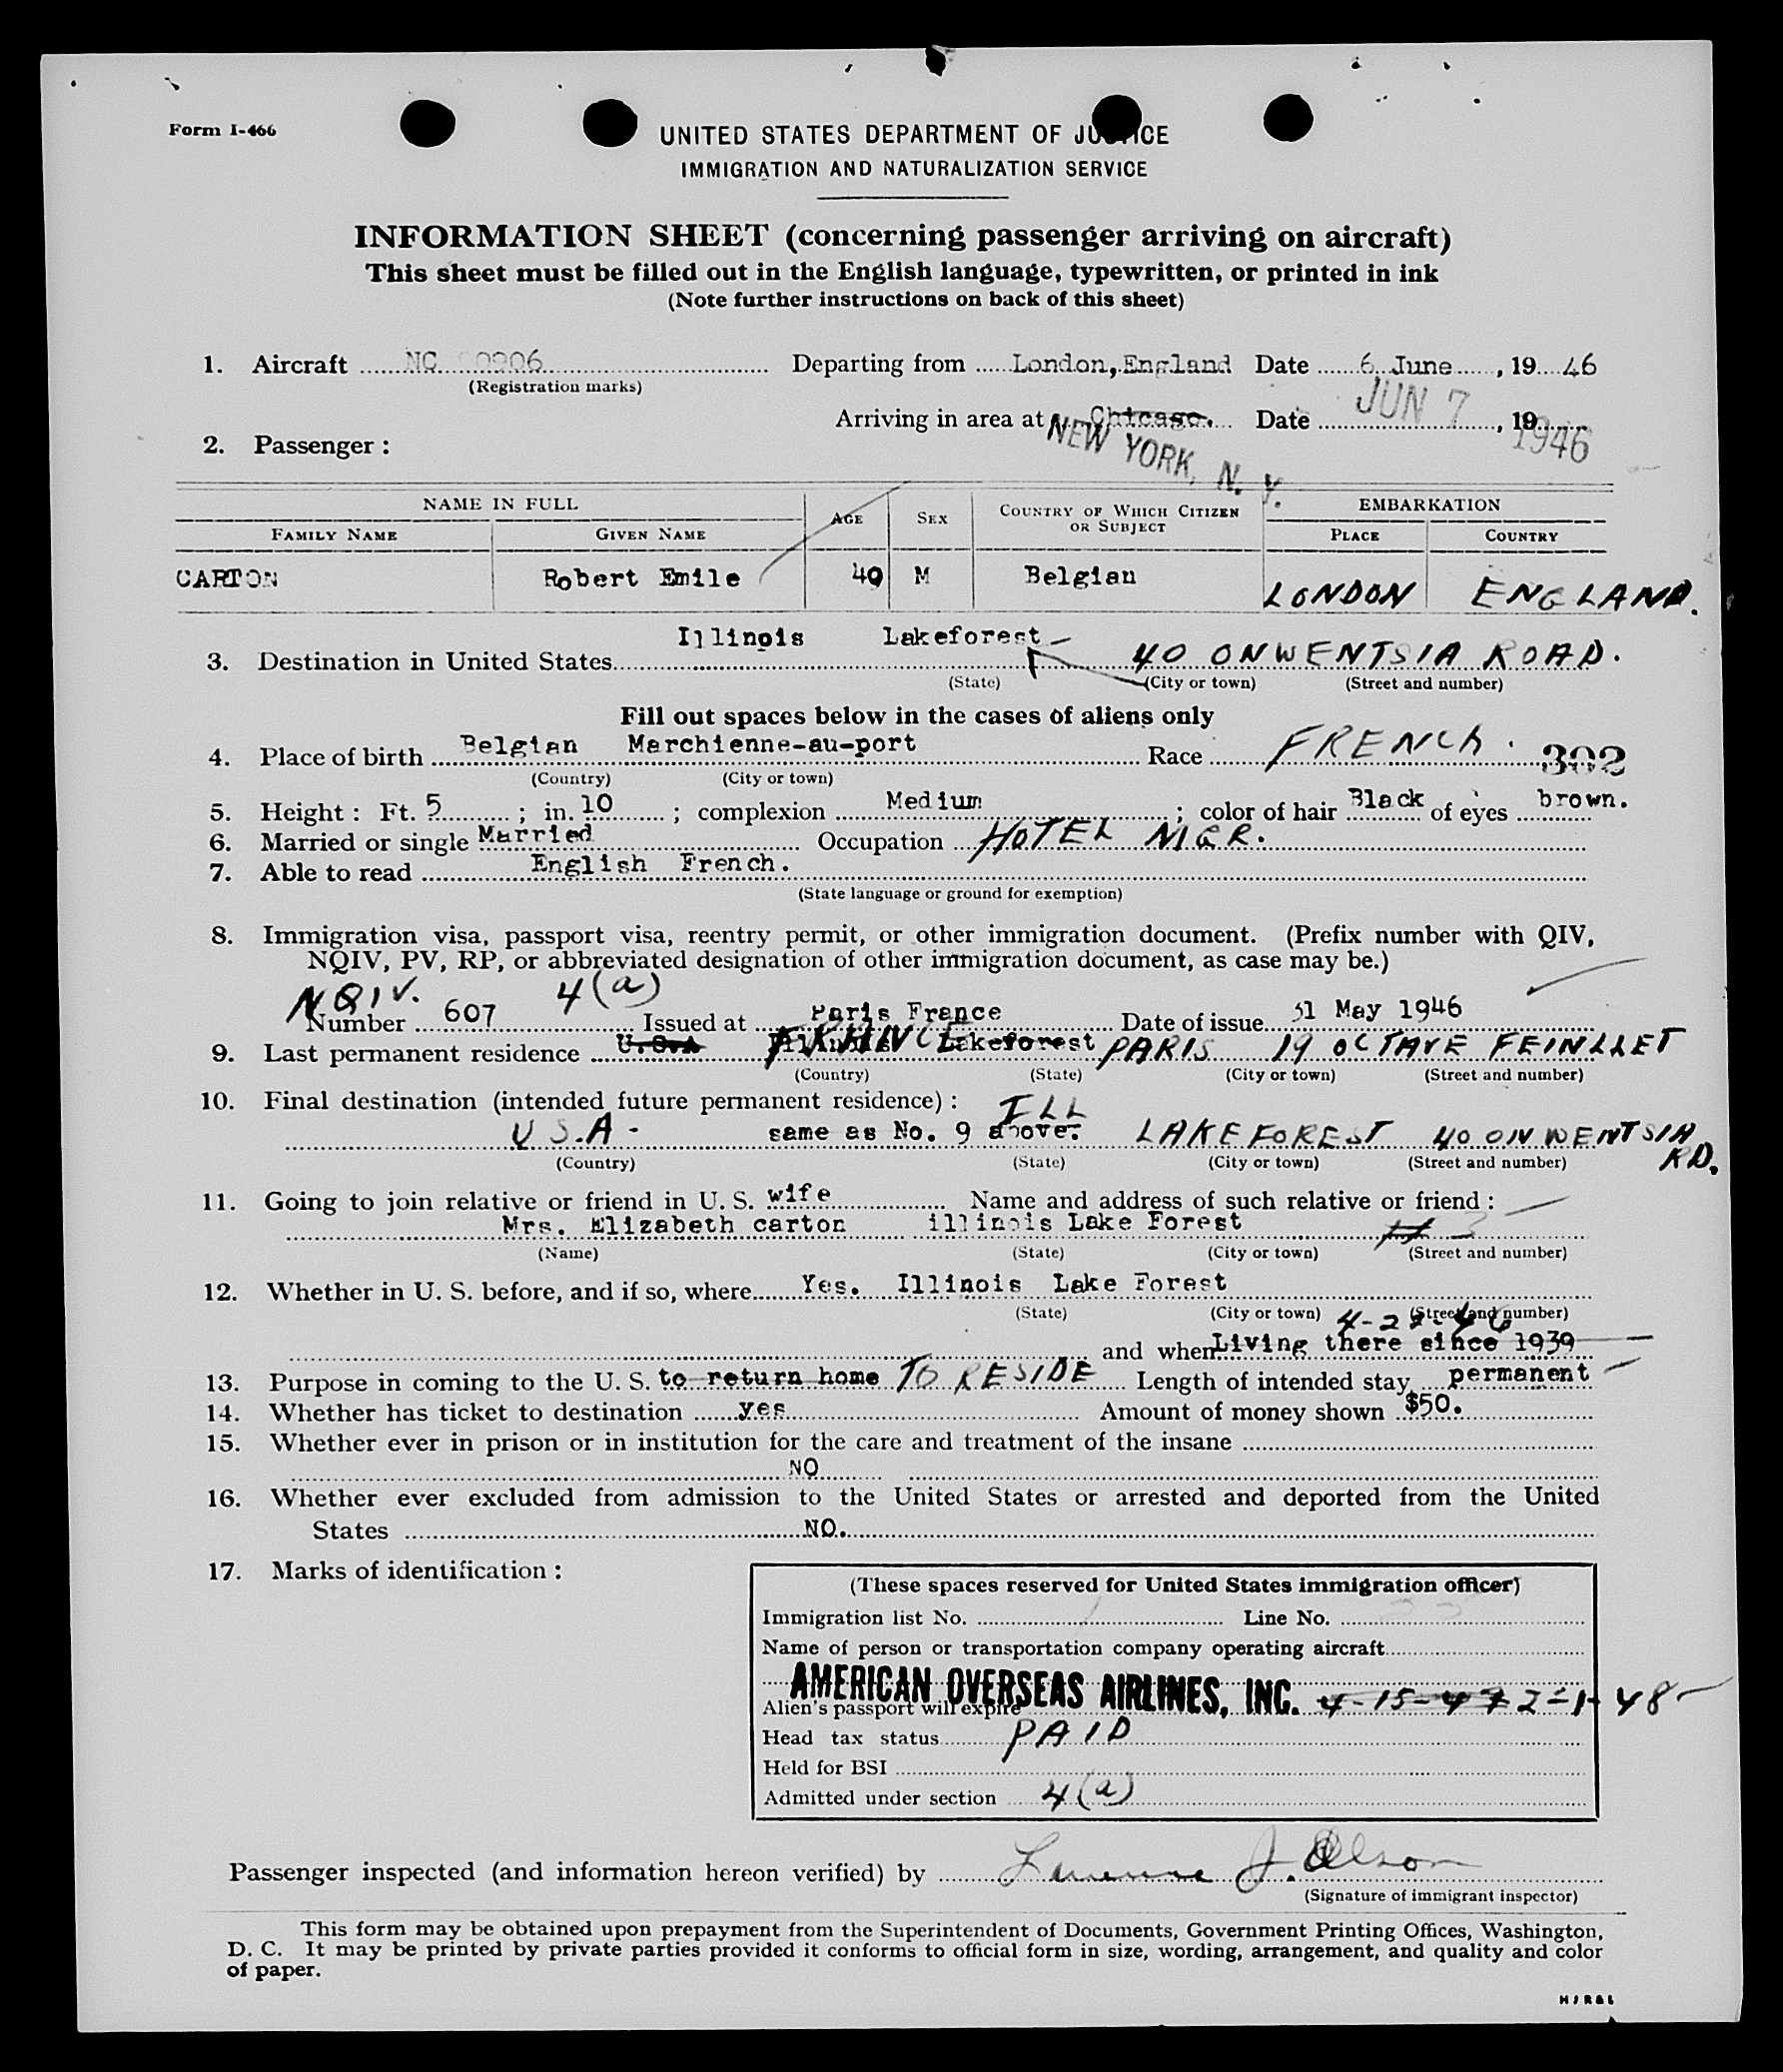 Form I-466
UNITED STATES DEPARTMENT OF JUSTICE
IMMIGRATION AND NATURALIZATION SERVICE
INFORMATION SHEET (concerning passenger arriving on aircraft)
This sheet must be filled out in the English language, typewritten, or printed in ink
(Note further instructions on back of this sheet)
1. Aircraft NC 0906 Departing from London, England Date 6 June, 1946
(Registration marks)
Arriving in area at Chicago. Date JUN 7, 19 1946
NEW YORK, N. Y.
2. Passenger :
NAME IN FULL AGE SEX COUNTRY OF WHICH CITIZEN OR SUBJECT EMBARKATION
FAMILY NAME GIVEN NAME PLACE COUNTRY
CARTON Robert Emile 40 M Belgian LONDON ENGLAND.
Illinois Lakeforest
3. Destination in United States 40 ONWENTSIA ROAD.
(State) (City or town) (Street and number)
Fill out spaces below in the cases of aliens only
4. Place of birth Belgian Marchienne-au-port Race FRENCH. 302
(Country) (City or town)
5. Height : Ft. 5 ; in. 10 ; complexion Medium ; color of hair Black of eyes brown.
6. Married or single Married Occupation HOTEL MGR.
7. Able to read English French.
(State language or ground for exemption)
8. Immigration visa, passport visa, reentry permit, or other immigration document. (Prefix number with QIV,
NQIV, PV, RP, or abbreviated designation of other immigration document, as case may be.)
NQIV. 4(a)
Number 607 Issued at Paris France Date of issue 31 May 1946
9. Last permanent residence U.S.A Illinois FRANCE Lakeforest PARIS 19 OCTAVE FEINLLET
(Country) (State) (City or town) (Street and number)
10. Final destination (intended future permanent residence) : ILL
USA - same as No. 9 above. LAKEFOREST 40 ONWENTSIA RD.
(Country) (State) (City or town) (Street and number)
11. Going to join relative or friend in U. S. wife Name and address of such relative or friend :
Mrs. Elizabeth carton illinois Lake Forest
(Name) (State) (City or town) (Street and number)
12. Whether in U. S. before, and if so, where Yes. Illinois Lake Forest
(State) (City or town) (Street and number)
and when Living there since 1939
13. Purpose in coming to the U. S. to return home TO RESIDE Length of intended stay permanent
14. Whether has ticket to destination yes Amount of money shown $50.
15. Whether ever in prison or in institution for the care and treatment of the insane
NO
16. Whether ever excluded from admission to the United States or arrested and deported from the United
States NO.
17. Marks of identification :
(These spaces reserved for United States immigration officer)
Immigration list No. Line No.
Name of person or transportation company operating aircraft
AMERICAN OVERSEAS AIRLINES, INC.
Alien's passport will expire 4-15-47 2-1-48
Head tax status PAID
Held for BSI
Admitted under section 4(a)
Passenger inspected (and information hereon verified) by J. Olson
(Signature of immigrant inspector)
This form may be obtained upon prepayment from the Superintendent of Documents, Government Printing Offices, Washington,
D. C. It may be printed by private parties provided it conforms to official form in size, wording, arrangement, and quality and color
of paper.